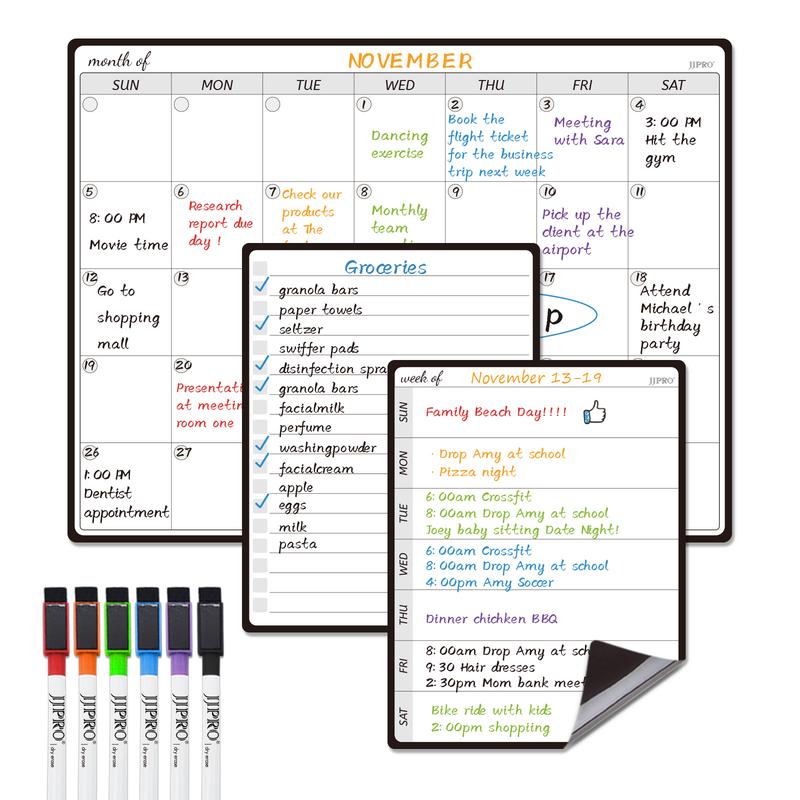 month of NOVEMBER JJPRO
SUN MON TUE WED THU FRI SAT
1 2 3 4
Dancing
exercise
Book the
flight ticket
for the business
trip next week
Meeting
with Sara
3:00 PM
Hit the
gym
5 6 7 8 9 10 11
8:00 PM
Movie time
Research
report due
day !
Check our
products
at The
Monthly
team
Pick up the
client at the
airport
12 13 17 18
Go to
shopping
mall
p
Attend
Michael's
birthday
party
19 20
Presentati
at meetin
room one
26 27
1:00 PM
Dentist
appointment
Groceries
granola bars
paper towels
seltzer
swiffer pads
disinfection spra
granola bars
facialmilk
perfume
washingpowder
facialcream
apple
eggs
milk
pasta
week of November 13-19 JJPRO
SUN
Family Beach Day!!!!
MON
· Drop Amy at school
· Pizza night
TUE
6:00am Crossfit
8:00am Drop Amy at school
Joey baby sitting Date Night!
WED
6:00am Crossfit
8:00am Drop Amy at school
4:00pm Amy Soccer
THU
Dinner chichken BBQ
FRI
8:00am Drop Amy at sch
9:30 Hair dresses
2:30pm Mom bank meet
SAT
Bike ride with kids
2:00pm shopping
JJPRO dry erase
JJPRO dry erase
JJPRO dry erase
JJPRO dry erase
JJPRO dry erase
JJPRO dry erase